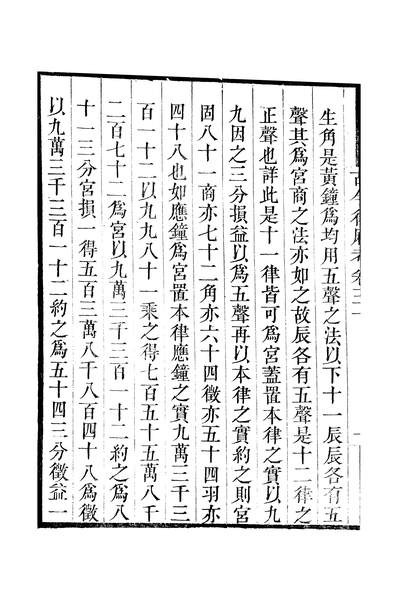 生角是黃鐘爲均用五聲之法以下十一辰辰各有五
聲其爲宮商之法亦如之故辰各有五聲是十二律之
正聲也詳此是十一律皆可爲宮蓋置本律之實以九
九因之三分損益以爲五聲再以本律之實約之則宮
固八十一商亦七十二角亦六十四徵亦五十四羽亦
四十八也如應鐘爲宮置本律應鐘之實九萬三千三
百一十二以九九八十一乘之得七百五十五萬八千
二百七十二爲宮以九萬三千三百一十二約之爲八
十一三分宮損一得五百三萬八千八百四十八爲徵
以九萬三千三百一十二約之爲五十四三分徵益一